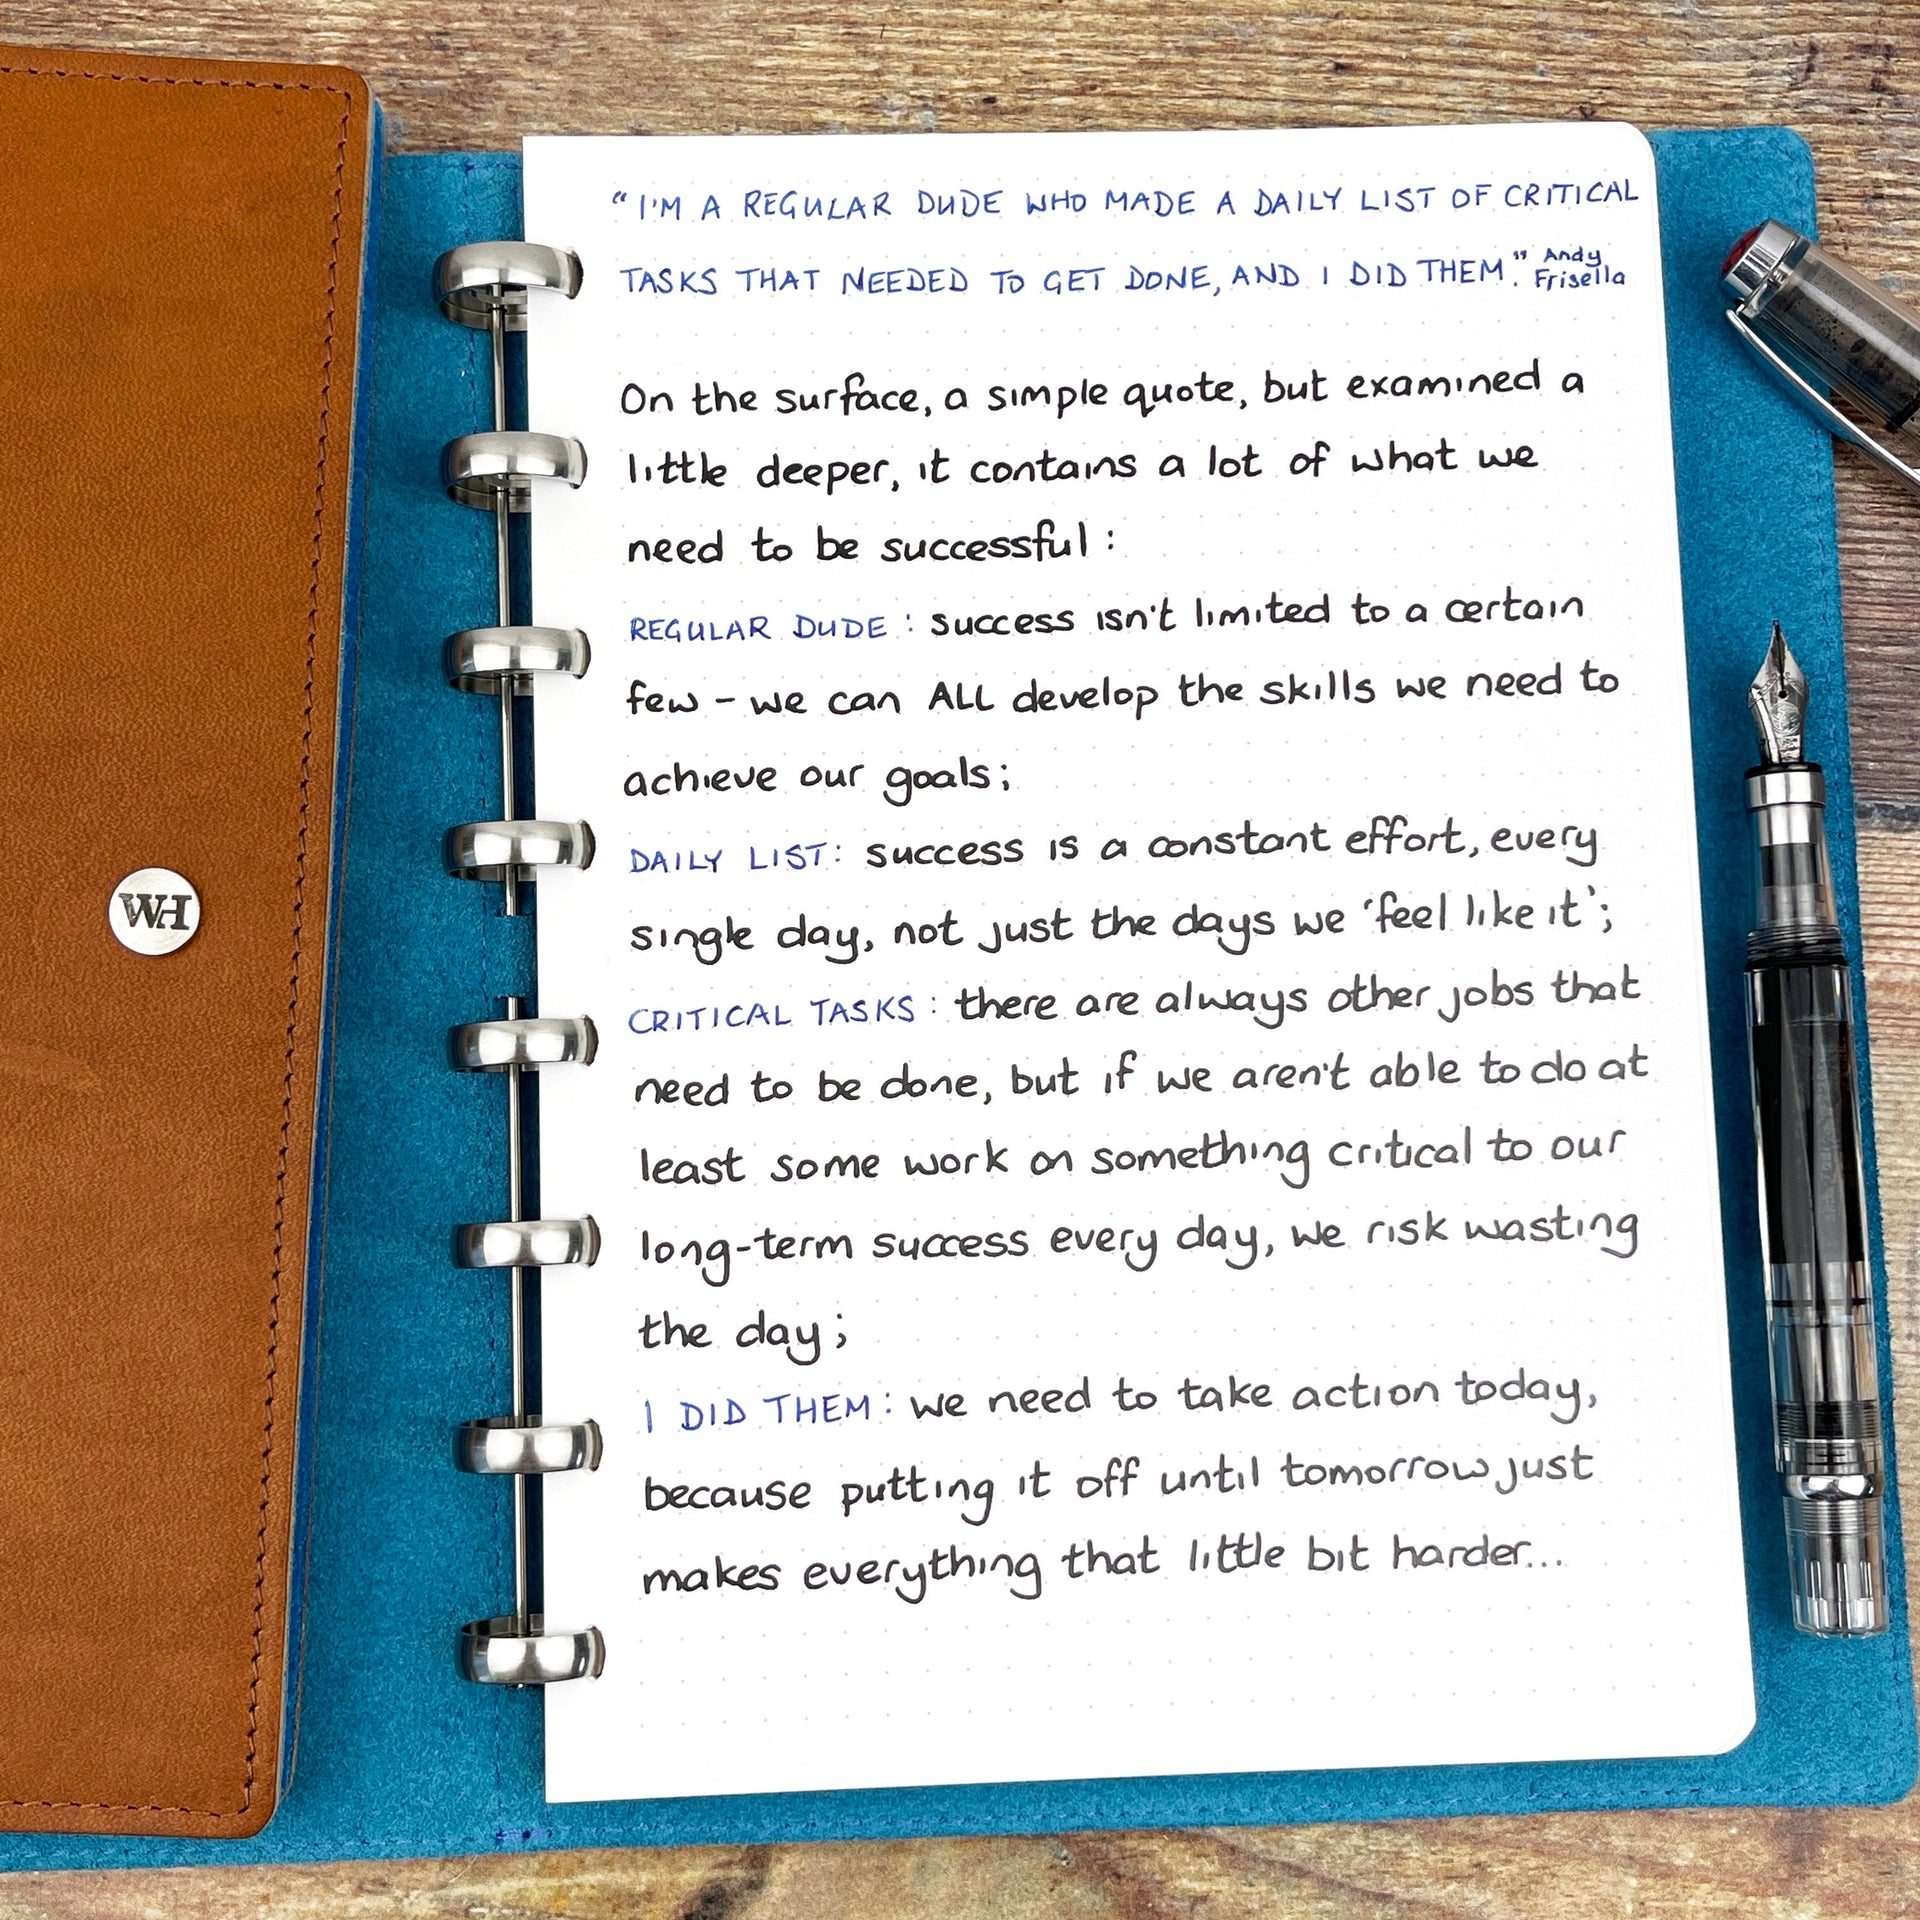 "I'M A REGULAR DUDE WHO MADE A DAILY LIST OF CRITICAL
TASKS THAT NEEDED TO GET DONE, AND I DID THEM". Andy
Frisella
On the surface, a simple quote, but examined a
little deeper, it contains a lot of what we
need to be successful:
REGULAR DUDE: success isn't limited to a certain
few - we can ALL develop the skills we need to
achieve our goals;
DAILY LIST: success is a constant effort, every
single day, not just the days we 'feel like it';
CRITICAL TASKS: there are always other jobs that
need to be done, but if we aren't able to do at
least some work on something critical to our
long-term success every day, we risk wasting
the day;
I DID THEM: we need to take action today,
because putting it off until tomorrow just
makes everything that little bit harder...
WH